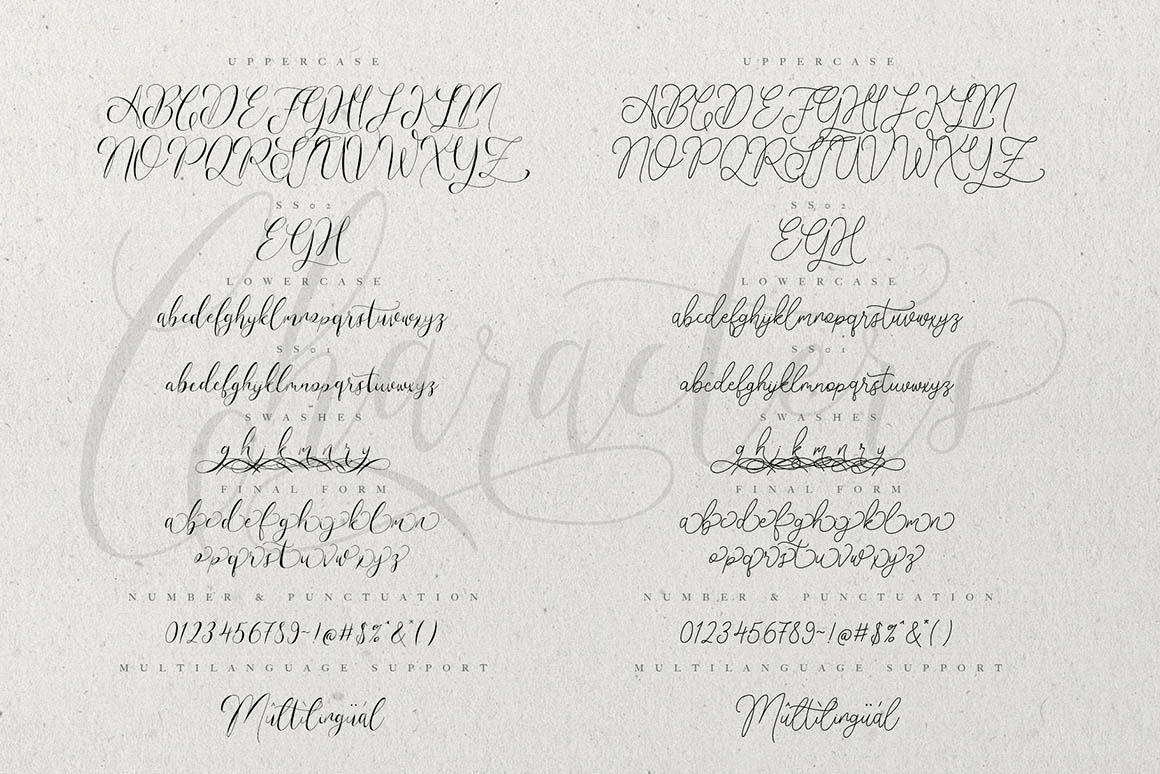 UPPERCASE
ABCDEFGHIJKLM
NOPQRSTUVWXYZ
SS02
EGH
LOWERCASE
abcdefghijklmnopqrstuvwxyz
SS01
abcdefghijklmnopqrstuvwxyz
SWASHES
g h j k m n r y
FINAL FORM
abcdefghijklmn
opqrstuvwxyz
NUMBER & PUNCTUATION
0123456789~!@#$%^&*()
MULTILANGUAGE SUPPORT
Mûltìlingüál
UPPERCASE
ABCDEFGHIJKLM
NOPQRSTUVWXYZ
SS02
EGH
LOWERCASE
abcdefghijklmnopqrstuvwxyz
SS01
abcdefghijklmnopqrstuvwxyz
SWASHES
g h j k m n r y
FINAL FORM
abcdefghijklmn
opqrstuvwxyz
NUMBER & PUNCTUATION
0123456789~!@#$%^&*()
MULTILANGUAGE SUPPORT
Mûltìlingüál
Characters